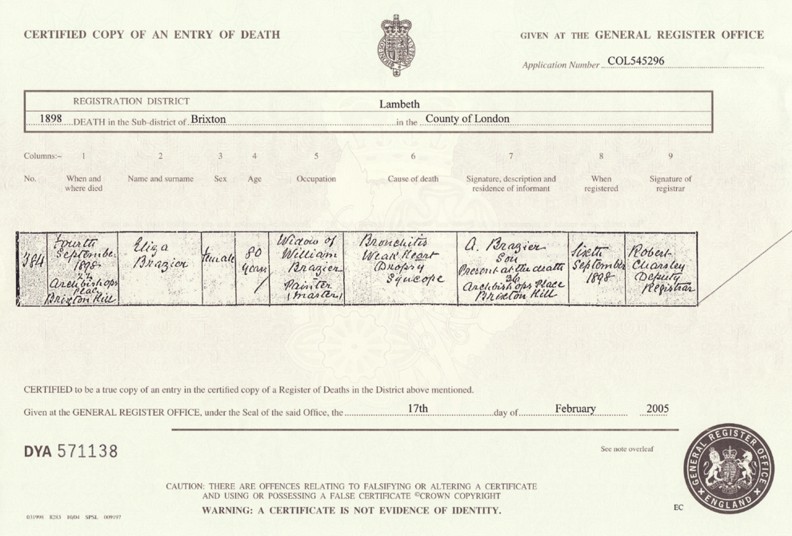 CERTIFIED COPY OF AN ENTRY OF DEATH
GIVEN AT THE GENERAL REGISTER OFFICE
Application Number COL545296
REGISTRATION DISTRICT Lambeth
1898 DEATH in the Sub-district of Brixton in the County of London
Columns:- 1 2 3 4 5 6 7 8 9
No. When and where died Name and surname Sex Age Occupation Cause of death Signature, description and residence of informant When registered Signature of registrar
384
Fourth
September
1898
Archbishops
Place
Brixton Hill
Eliza
Brazier
Female
80
years
Widow of
William
Brazier
Painter
(master)
Bronchitis
Weak Heart
Dropsy
Syncope
A. Brazier
Son
Present at the death
26
Archbishops Place
Brixton Hill
Sixth
September
1898
Robert
Charsley
Deputy
Registrar
CERTIFIED to be a true copy of an entry in the certified copy of a Register of Deaths in the District above mentioned.
Given at the GENERAL REGISTER OFFICE, under the Seal of the said Office, the 17th day of February 2005
DYA 571138
See note overleaf
CAUTION: THERE ARE OFFENCES RELATING TO FALSIFYING OR ALTERING A CERTIFICATE
AND USING OR POSSESSING A FALSE CERTIFICATE ©CROWN COPYRIGHT
WARNING: A CERTIFICATE IS NOT EVIDENCE OF IDENTITY.
GENERAL REGISTER OFFICE
ENGLAND
EC